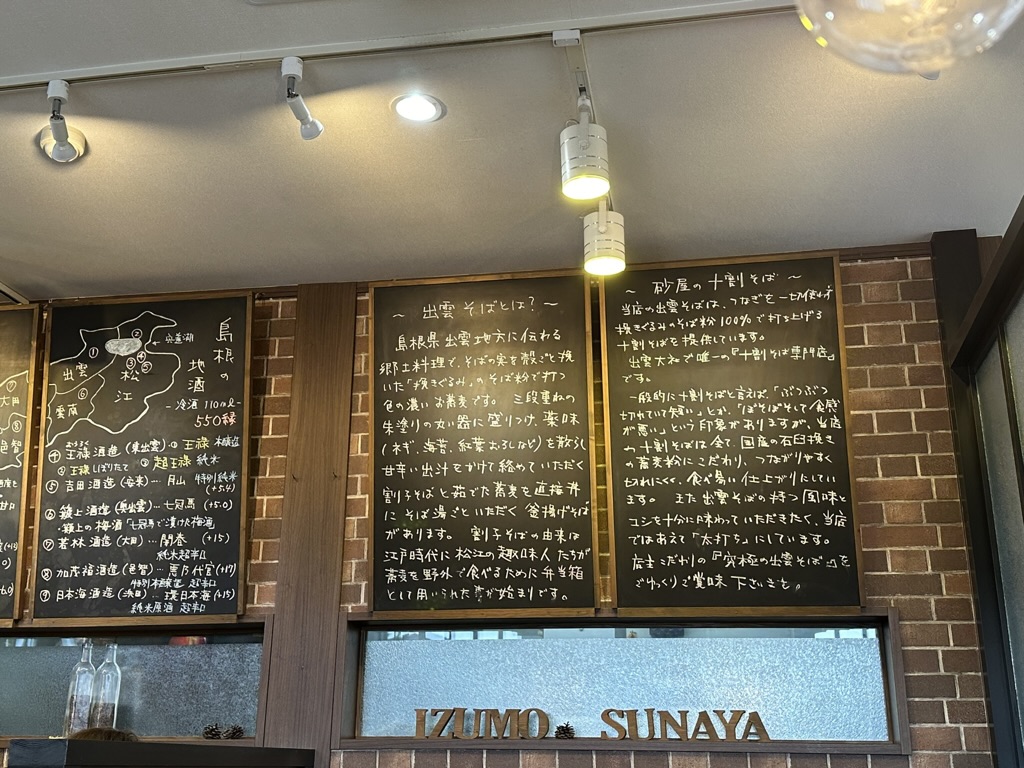 大田
邑智
島根の
地酒
宍道湖
①
②
③
④
⑤
⑥
出雲
松江
雲南
冷酒 110ml-
550縁
④ 王禄酒造(東出雲)… 王禄 本醸造
王禄 しぼりたて 超王禄 純米
⑤ 吉田酒造(安来)… 月山 特別純米
(+5.4)
⑥ 簸上酒造(奥出雲)… 七冠馬(+5.0)
簸上の梅酒 七冠馬で漬けた梅酒
⑦ 若林酒造(大田)… 開春 (+15)
純米超辛口
⑧ 加茂福酒造(邑智)… 死神代官(+17)
特別本醸造 超辛口
⑨ 日本海酒造(浜田)… 環日本海(+15)
純米原酒 超辛口
~ 出雲そばとは? ~
島根県 出雲地方に伝わる
郷土料理で、そばの実を殻ごと挽
いた「挽きぐるみ」のそば粉で打つ
色の濃いお蕎麦です。 三段重ねの
朱塗りの丸い器に盛りつけ、薬味
(ネギ、海苔、紅葉おろしなど)を散らし
甘辛い出汁をかけて絡めていただく
割子そばと茹でた蕎麦を直接丼
に そば湯ごといただく 釜揚げそば
があります。 割子そばの由来は
江戸時代に松江の趣味人たちが
蕎麦を野外で食べるために弁当箱
として用いられた事が始まりです。
~ 砂屋の十割そば ~
当店の出雲そばは、つなぎを一切使わず
挽きぐるみのそば粉100%で打上げる
十割そばを提供しています。
出雲大社で唯一の『十割そば専門店』
です。
一般的に十割そばと言えば、「ぶつぶつ
切れていて短い」とか、「ぼそぼそして食感
が悪い」という印象がありますが、当店
の十割そばは全て、国産の石臼挽き
の蕎麦粉にこだわり、つながりやすく
切れにくく、食べ易い仕上がりにしてい
ます。 また出雲そばの持つ風味と
コシを十分に味わっていただきたく、当店
ではあえて「太打ち」にしています。
店主こだわりの『究極の出雲そば』を
ごゆっくりご賞味 下さいませ。
IZUMO SUNAYA